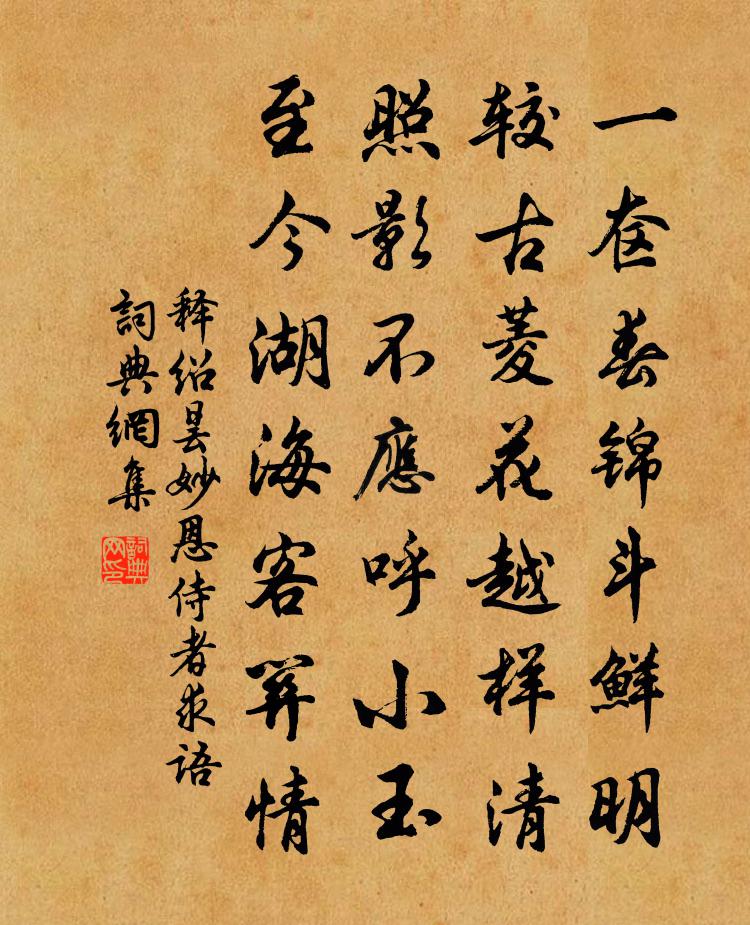 一奁春锦斗鲜明
较古菱花越样清
照影不應呼小玉
至今湖海客關情
释绍昙妙恩侍者求语
詞典網集
詞典网印